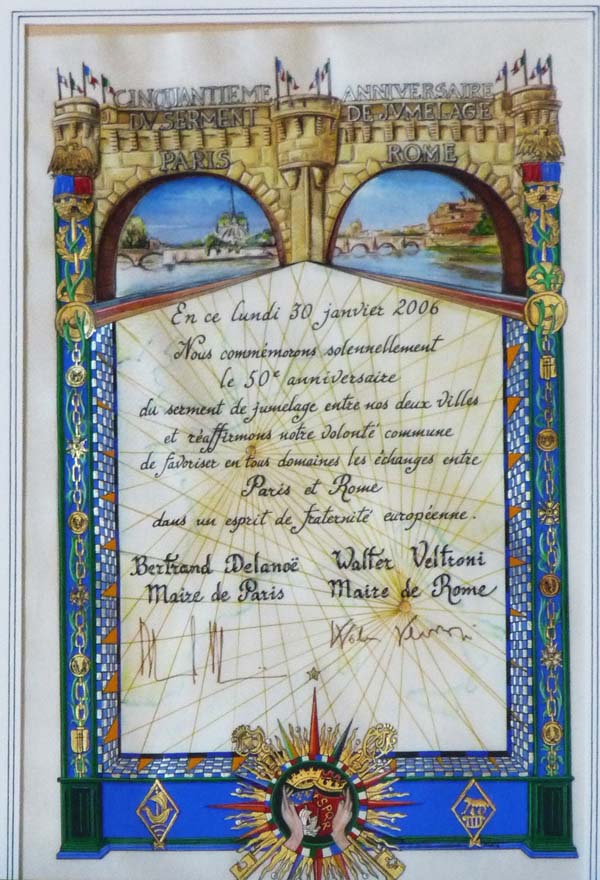 CINQUANTIEME ANNIVERSAIRE
DV SERMENT DE JUMELAGE
PARIS ROME
En ce lundi 30 janvier 2006
Nous commémorons solennellement
le 50e anniversaire
du serment de jumelage entre nos deux villes
et réaffirmons notre volonté commune
de favoriser en tous domaines les échanges entre
Paris et Rome
dans un esprit de fraternité européenne.
Bertrand Delanoë Walter Veltroni
Maire de Paris Maire de Rome
SPQR